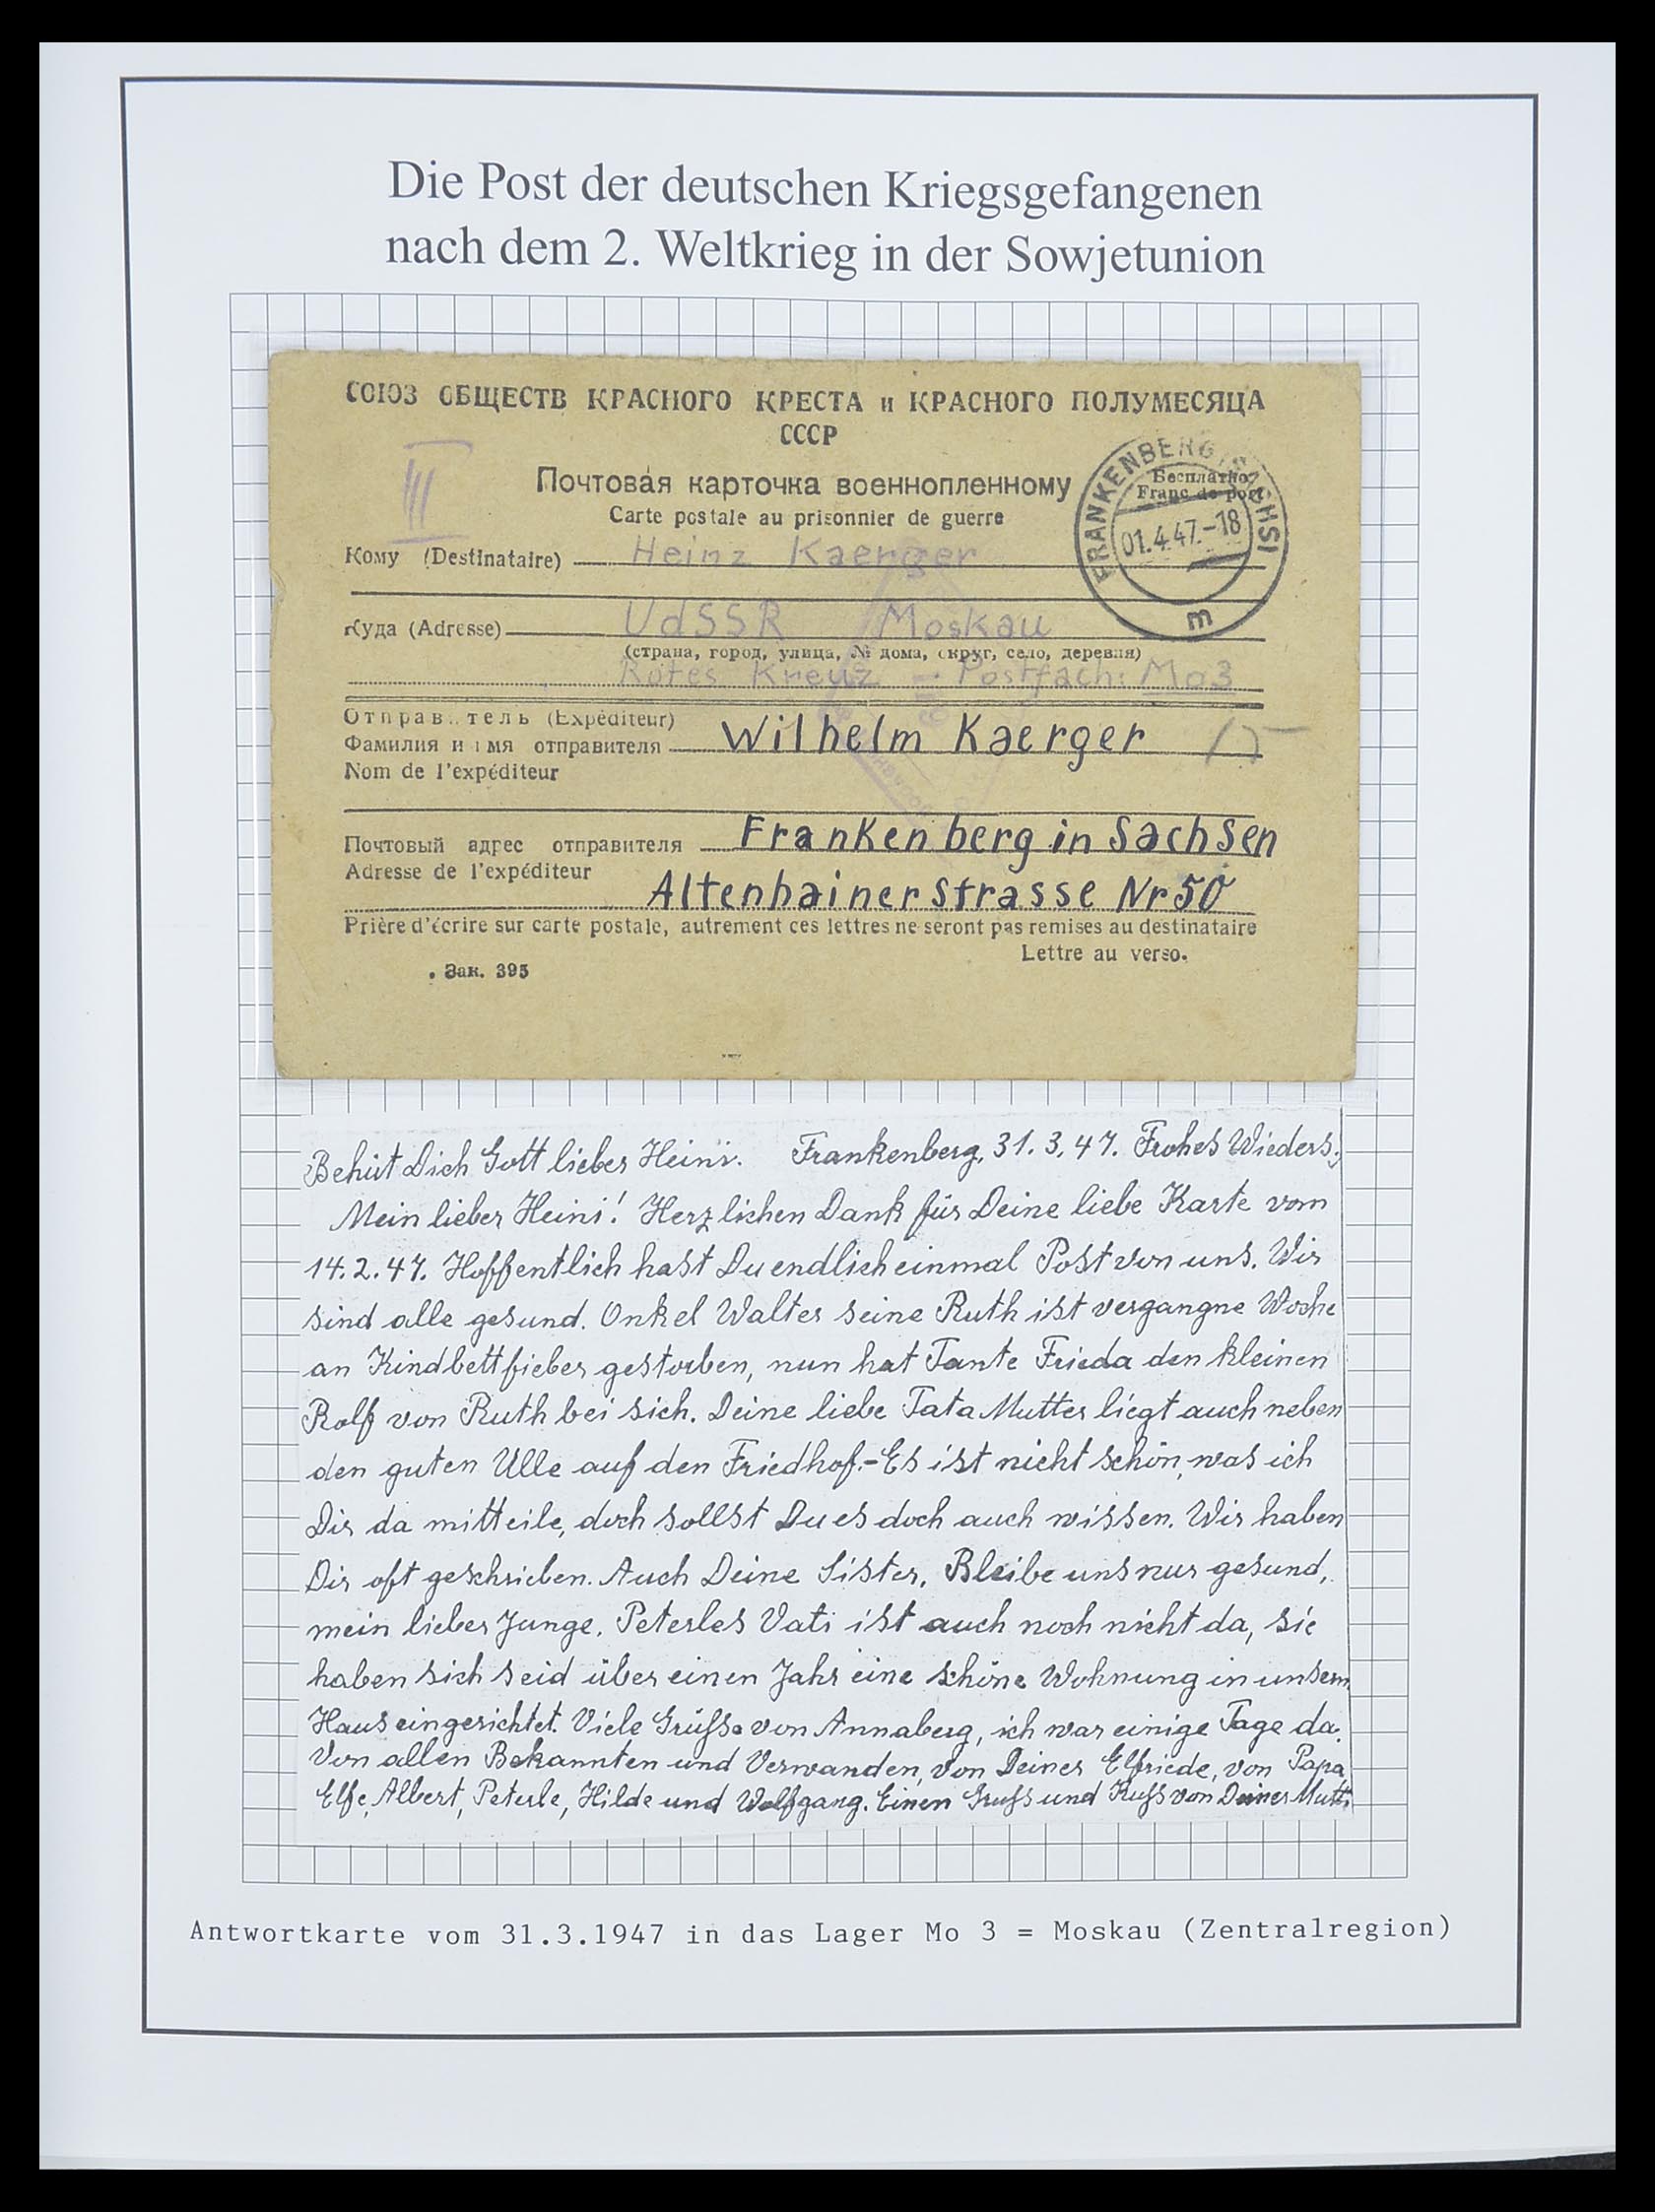 Die Post der deutschen Kriegsgefangenen
nach dem 2. Weltkrieg in der Sowjetunion
СОЮЗ ОБЩЕСТВ КРАСНОГО КРЕСТА и КРАСНОГО ПОЛУМЕСЯЦА
СССР
III
Почтовая карточка военнопленному
Carte postale au prisonnier de guerre
Бесплатно
Franc de port
FRANKENBERG (SACHS)
01.4.47.-18
m
Кому (Destinataire) Heinz Kaerger
Куда (Adresse) UdSSR Moskau
(страна, город, улица, № дома, округ, село, деревня)
Rotes Kreuz - Postfach: Mo3
Отправитель (Expéditeur)
Фамилия и имя отправителя Wilhelm Kaerger
Nom de l'expéditeur
Почтовый адрес отправителя Frankenberg in Sachsen
Adresse de l'expéditeur
Altenhainer Strasse Nr 50
Prière d'écrire sur carte postale, autrement ces lettres ne seront pas remises au destinataire
Lettre au verso.
Зак. 395
Behüt Dich Gott lieber Heini. Frankenberg, 31.3.47. Frohes Wieders.
Mein lieber Heini! Herzlichen Dank für Deine liebe Karte vom
14.2.47. Hoffentlich hast Du endlich einmal Post von uns. Wir
sind alle gesund. Onkel Walter seine Ruth ist vergangne Woche
an Kindbettfieber gestorben, nun hat Tante Frieda den kleinen
Rolf von Ruth bei sich. Deine liebe Tata Mutter liegt auch neben
den guten Ulle auf den Friedhof.- Es ist nicht schön, was ich
Dir da mitteile, doch sollst Du es doch auch wissen. Wir haben
Dir oft geschrieben. Auch Deine Sister. Bleibe uns nur gesund,
mein lieber Junge. Peterles Vati ist auch noch nicht da, sie
haben sich seid über einen Jahr eine schöne Wohnung in unsem
Haus eingerichtet. Viele Grüsse von Annaberg, ich war einige Tage da.
Von allen Bekannten und Verwanden, von Deiner Elfriede, von Papa
Elfe, Albert, Peterle, Hilde und Wolfgang. Einen Gruss und Kuss von Deiner Mutti
Antwortkarte vom 31.3.1947 in das Lager Mo 3 = Moskau (Zentralregion)